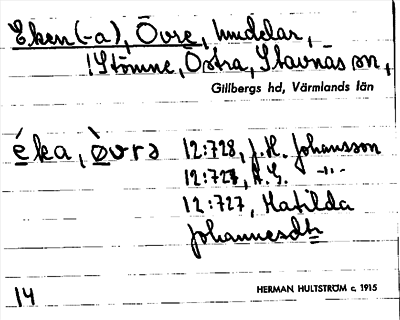 Eken (-a), Övre, hmdelar,
i Stömne, Östra, Stavnäs sn,
Gillbergs hd, Värmlands län
éka, òvrə 12:728, J.H. Johansson
12:727, A.G. -"-
12:727, Matilda
Johannesdtr
14
HERMAN HULTSTRÖM c. 1915